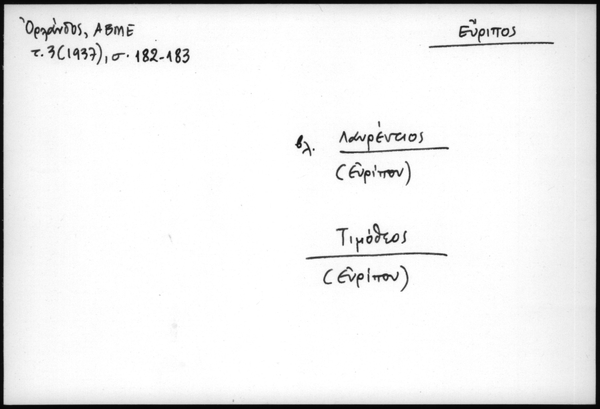 Ὀρλάνδος, ΑΒΜΕ
τ. 3 (1937), σ. 182-183
Εὔριπος
βλ. Λαυρέντιος
(Εὐρίπου)
Τιμόθεος
(Εὐρίπου)